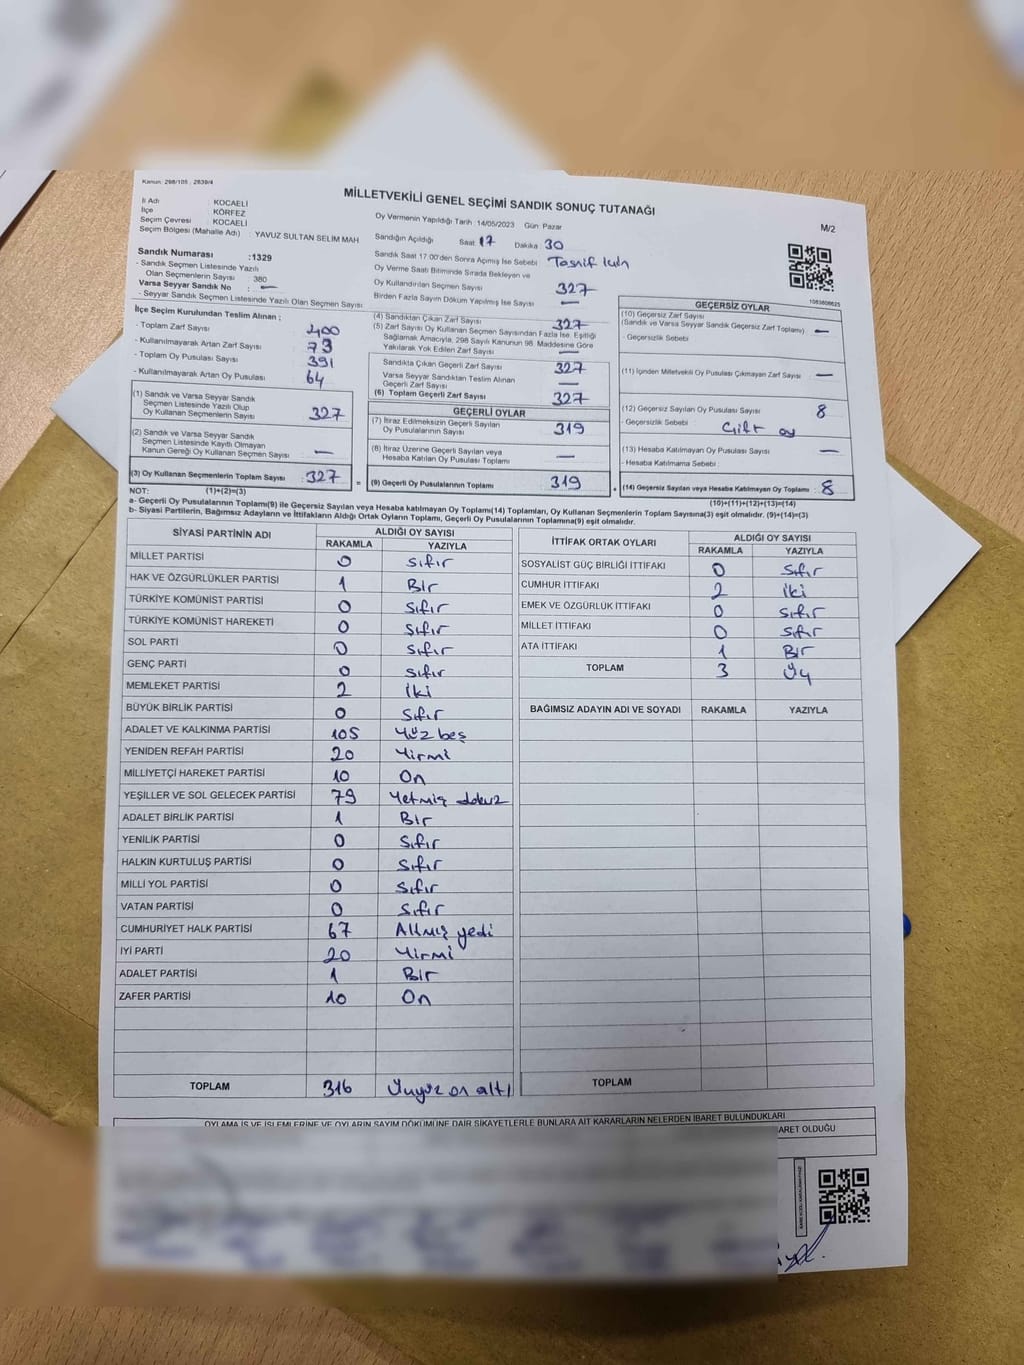 Kanun: 298/105 , 2839/4
MİLLETVEKİLİ GENEL SEÇİMİ SANDIK SONUÇ TUTANAĞI
M/2
İl Adı : KOCAELİ
İlçe : KÖRFEZ
Seçim Çevresi : KOCAELİ
Seçim Bölgesi (Mahalle Adı) : YAVUZ SULTAN SELİM MAH
Sandık Numarası :1329
- Sandık Seçmen Listesinde Yazılı
Olan Seçmenlerin Sayısı : 380
Varsa Seyyar Sandık No : —
- Seyyar Sandık Seçmen Listesinde Yazılı Olan Seçmen Sayısı:
Oy Vermenin Yapıldığı Tarih :14/05/2023 Gün: Pazar
Sandığın Açıldığı Saat 17 Dakika 30
Sandık Saat 17:00'den Sonra Açılmış İse Sebebi Tasnif İçin
Oy Verme Saati Bitiminde Sırada Bekleyen ve
Oy Kullandırılan Seçmen Sayısı 327
Birden Fazla Sayım Döküm Yapılmış İse Sayısı —
1083608625
İlçe Seçim Kurulundan Teslim Alınan ;
- Toplam Zarf Sayısı 400
- Kullanılmayarak Artan Zarf Sayısı 73
- Toplam Oy Pusulası Sayısı 391
- Kullanılmayarak Artan Oy Pusulası 64
(1) Sandık ve Varsa Seyyar Sandık
Seçmen Listesinde Yazılı Olup
Oy Kullanan Seçmenlerin Sayısı 327
(2) Sandık ve Varsa Seyyar Sandık
Seçmen Listesinde Kayıtlı Olmayan
Kanun Gereği Oy Kullanan Seçmen Sayısı —
(3) Oy Kullanan Seçmenlerin Toplam Sayısı 327
(1)+(2)=(3)
(4) Sandıktan Çıkan Zarf Sayısı 327
(5) Zarf Sayısı Oy Kullanan Seçmen Sayısından Fazla İse, Eşitliği
Sağlamak Amacıyla, 298 Sayılı Kanunun 98. Maddesine Göre
Yakılarak Yok Edilen Zarf Sayısı —
Sandıkta Çıkan Geçerli Zarf Sayısı 327
Varsa Seyyar Sandıktan Teslim Alınan
Geçerli Zarf Sayısı —
(6) Toplam Geçerli Zarf Sayısı 327
GEÇERLİ OYLAR
(7) İtiraz Edilmeksizin Geçerli Sayılan
Oy Pusulalarının Sayısı 319
(8) İtiraz Üzerine Geçerli Sayılan veya
Hesaba Katılan Oy Pusulası Toplamı —
= (9) Geçerli Oy Pusulalarının Toplamı 319
GEÇERSİZ OYLAR
(10) Geçersiz Zarf Sayısı
(Sandık ve Varsa Seyyar Sandık Geçersiz Zarf Toplamı) —
- Geçersizlik Sebebi
(11) İçinden Milletvekili Oy Pusulası Çıkmayan Zarf Sayısı —
(12) Geçersiz Sayılan Oy Pusulası Sayısı 8
- Geçersizlik Sebebi Çift oy
(13) Hesaba Katılmayan Oy Pusulası Sayısı —
- Hesaba Katılmama Sebebi
+ (14) Geçersiz Sayılan veya Hesaba Katılmayan Oy Toplamı 8
(10)+(11)+(12)+(13)=(14)
NOT:
a- Geçerli Oy Pusulalarının Toplamı(9) ile Geçersiz Sayılan veya Hesaba katılmayan Oy Toplamı(14) Toplamları, Oy Kullanan Seçmenlerin Toplam Sayısına(3) eşit olmalıdır. (9)+(14)=(3)
b- Siyasi Partilerin, Bağımsız Adayların ve İttifakların Aldığı Ortak Oyların Toplamı, Geçerli Oy Pusulalarının Toplamına(9) eşit olmalıdır.
SİYASİ PARTİNİN ADI ALDIĞI OY SAYISI
RAKAMLA YAZIYLA
MİLLET PARTİSİ 0 sıfır
HAK VE ÖZGÜRLÜKLER PARTİSİ 1 Bir
TÜRKİYE KOMÜNİST PARTİSİ 0 sıfır
TÜRKİYE KOMÜNİST HAREKETİ 0 sıfır
SOL PARTİ 0 sıfır
GENÇ PARTİ 0 sıfır
MEMLEKET PARTİSİ 2 İki
BÜYÜK BİRLİK PARTİSİ 0 Sıfır
ADALET VE KALKINMA PARTİSİ 105 Yüz beş
YENİDEN REFAH PARTİSİ 20 Yirmi
MİLLİYETÇİ HAREKET PARTİSİ 10 On
YEŞİLLER VE SOL GELECEK PARTİSİ 79 Yetmiş dokuz
ADALET BİRLİK PARTİSİ 1 Bir
YENİLİK PARTİSİ 0 Sıfır
HALKIN KURTULUŞ PARTİSİ 0 Sıfır
MİLLİ YOL PARTİSİ 0 Sıfır
VATAN PARTİSİ 0 Sıfır
CUMHURİYET HALK PARTİSİ 67 Altmış yedi
İYİ PARTİ 20 Yirmi
ADALET PARTİSİ 1 Bir
ZAFER PARTİSİ 10 On
TOPLAM 316 Üçyüz on altı
İTTİFAK ORTAK OYLARI ALDIĞI OY SAYISI
RAKAMLA YAZIYLA
SOSYALİST GÜÇ BİRLİĞİ İTTİFAKI 0 Sıfır
CUMHUR İTTİFAKI 2 İki
EMEK VE ÖZGÜRLÜK İTTİFAKI 0 sıfır
MİLLET İTTİFAKI 0 sıfır
ATA İTTİFAKI 1 Bir
TOPLAM 3 Üç
BAĞIMSIZ ADAYIN ADI VE SOYADI RAKAMLA YAZIYLA
TOPLAM
OYLAMA İŞ VE İŞLEMLERİNE VE OYLARIN SAYIM DÖKÜMÜNE DAİR ŞİKAYETLERLE BUNLARA AİT KARARLARIN NELERDEN İBARET BULUNDUKLARI
ARET OLDUĞU